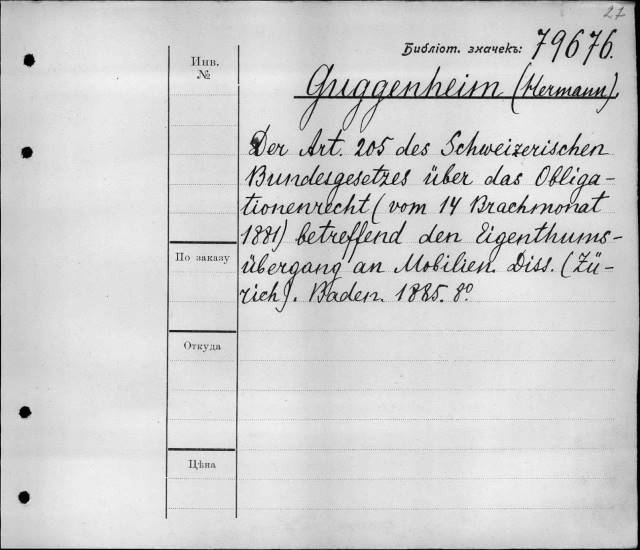 27
Библіот. значекъ: 79676.
Инв.
№
Guggenheim (Hermann).
Der Art. 205 des Schweizerischen
Bundesgesetzes über das Obliga-
tionenrecht (vom 14 Brachmonat
1881) betreffend den Eigenthums-
übergang an Mobilien. Diss. (Zü-
rich). Baden. 1885. 8º.
По заказу
Откуда
Цѣна